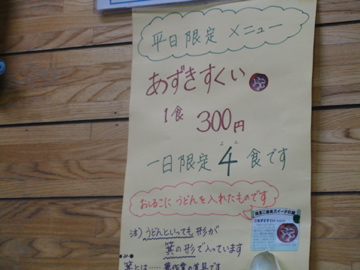 平日限定 メニュー
あずきすくい
1食 300円
一日限定 4 食です
おしるこに うどんを入れたものです
注) うどんといっても 形が
箕の形で入っています
箕とは……農作業の道具です